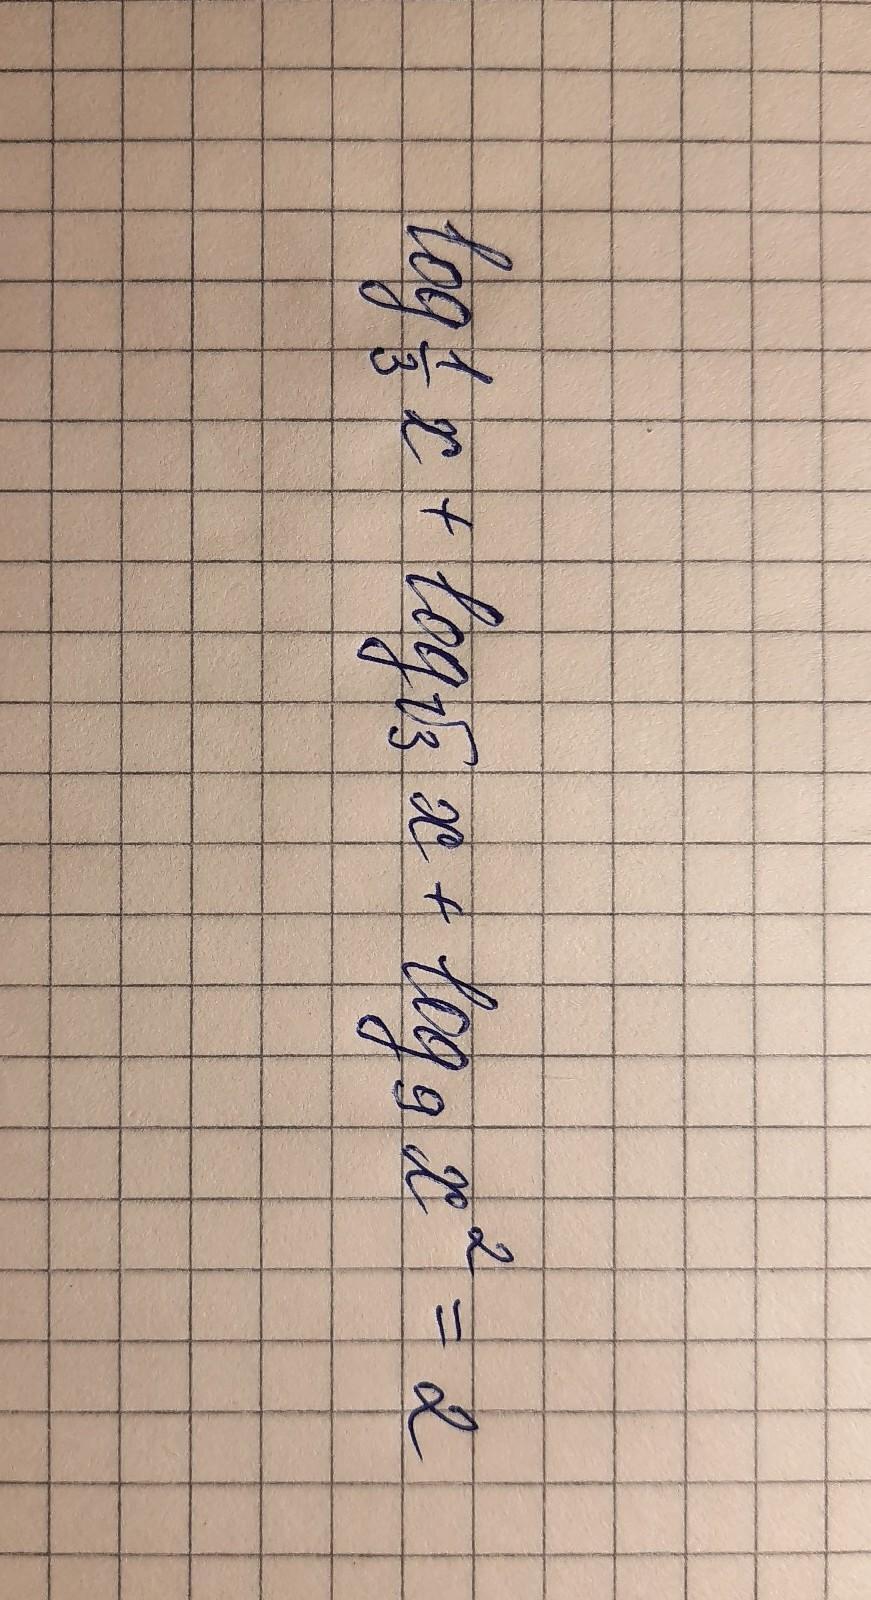 log_{1/3} x + log_{√3} x + log_9 x² = 2